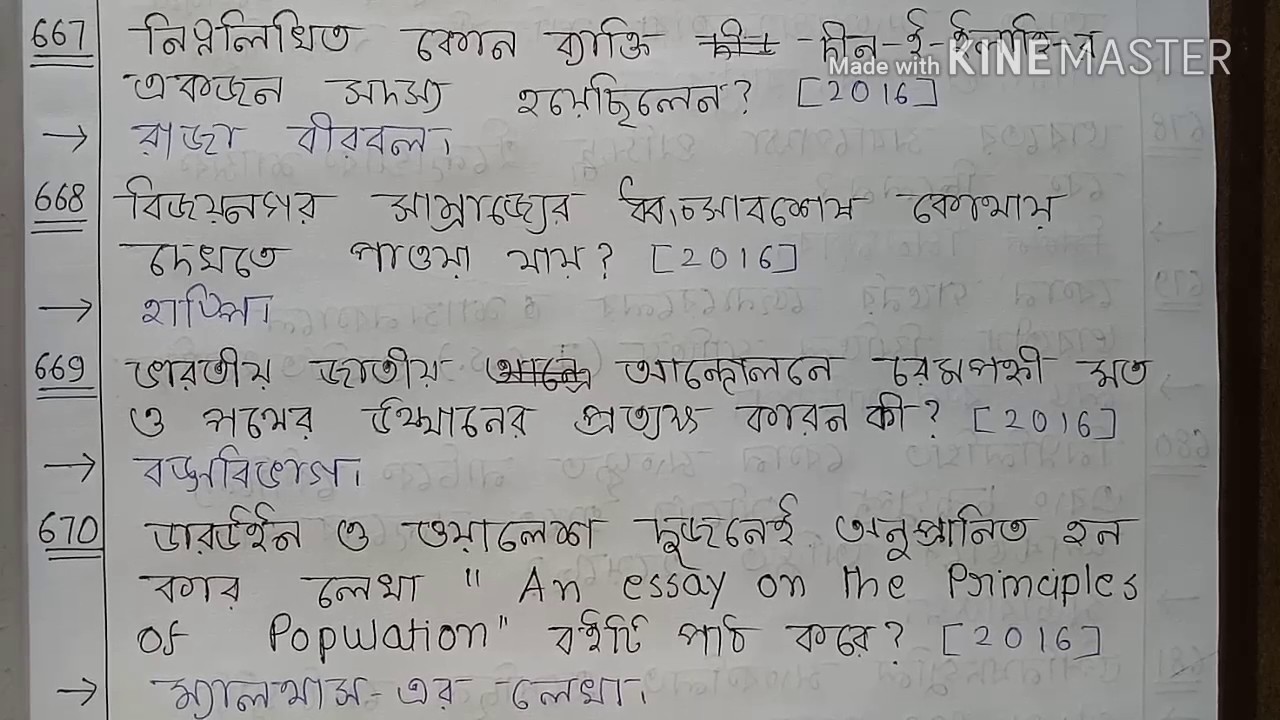 667 নিম্নলিখিত কোন ব্যাক্তি দীন-ই-ইলাহি-র
Made with KINEMASTER
একজন সদস্য হয়েছিলেন? [2016]
→ রাজা বীরবল।
668 বিজয়নগর সাম্রাজ্যের ধ্বংসাবশেষ কোথায়
দেখতে পাওয়া যায়? [2016]
→ হাম্পি।
669 ভারতীয় জাতীয় আন্দোলনে চরমপন্থী মত
ও পথের উত্থানের প্রত্যক্ষ কারন কী? [2016]
→ বঙ্গবিভাগ।
670 ডারউইন ও ওয়ালেশ দুজনেই অনুপ্রানিত হন
কার লেখা "An essay on the Principles
of Population" বইটি পাঠ করে? [2016]
→ ম্যালথাস-এর লেখা।